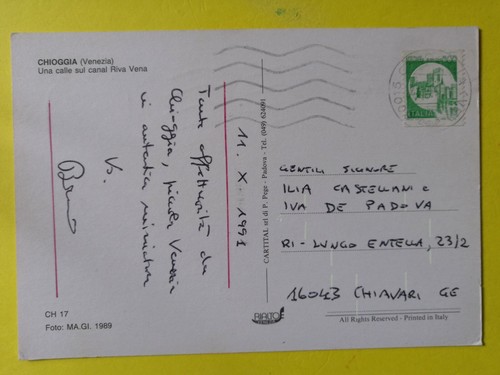 CHIOGGIA (Venezia)
Una calle sul canal Riva Vena
11. X 1991
Tante affettuosità da
Chioggia, piccola Venezia
in autentica miniatura
Vs.
CARTITAL srl di P. Pego - Padova - Tel. (049) 624091
ITALIA
GENTILI SIGNORE
ILIA CASTELLANI e
IVA DE PADOVA
RI - LUNGO ENTELLA, 23/2
16043 CHIAVARI GE
CH 17
Foto: MA.GI. 1989
RIALTO
All Rights Reserved - Printed in Italy